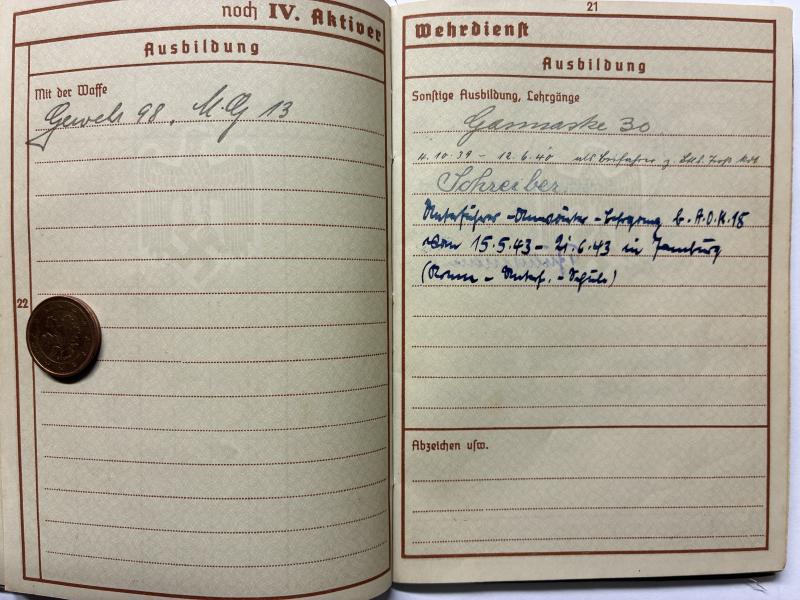 noch IV. Aktiver
Ausbildung
Mit der Waffe
Gewehr 98, M.G 13
22
21
Wehrdienst
Ausbildung
Sonstige Ausbildung, Lehrgänge
Gasmaske 30
11.10.39 - 12.6.40 als Beifahrer z.
Schreiber
Unterführer-Anwärter-Lehrgang b. A.O.K. 18
vom 15.5.43 - 6.43 in Jamburg
Unterf.-Schule)
Abzeichen usw.